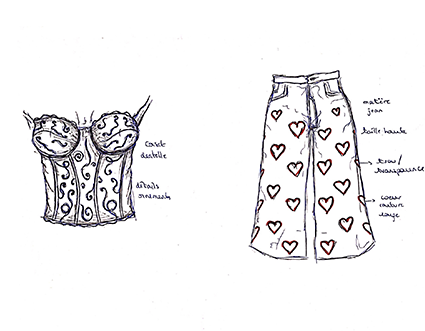 Corset
dentelle
détails
ornements
matière
jean
taille haute
trou/
transparence
coeur
couture
rouge